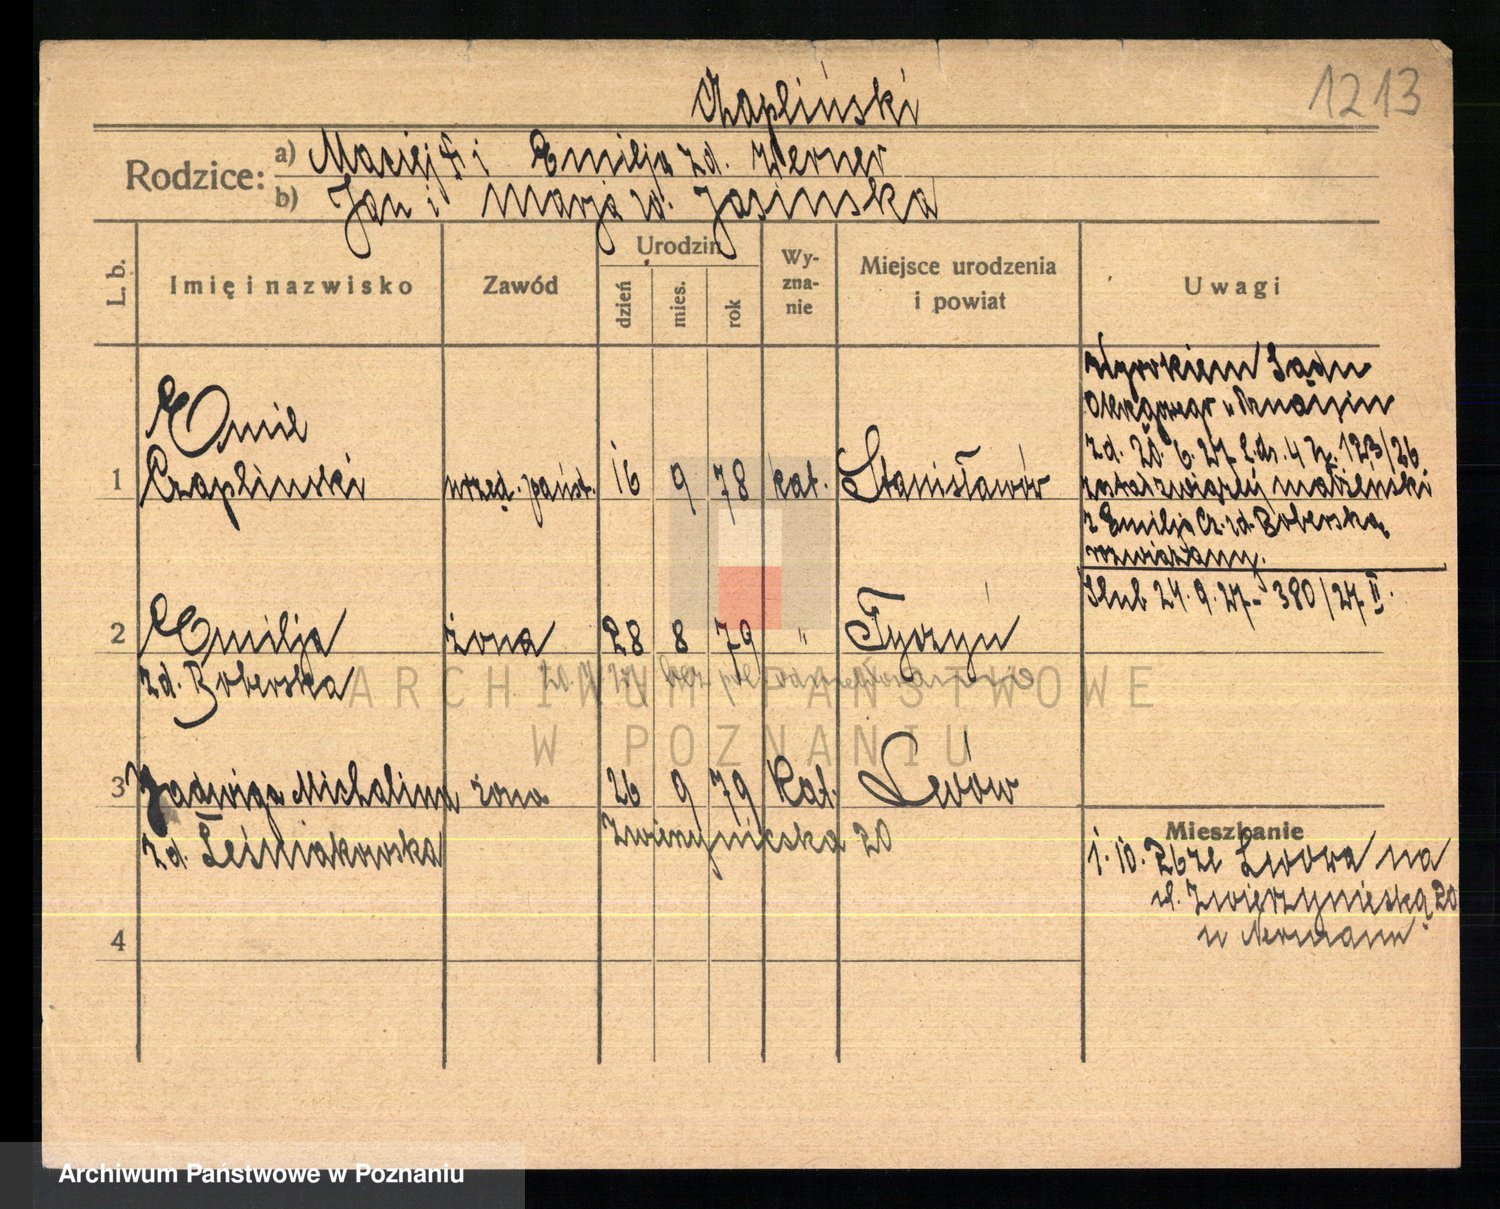 Czapliński
1213
Rodzice: a) Maciej † i Emilja zd. Werner
b) Jan i Marja zd. Jasińska
L. b.
Imię i nazwisko
Zawód
Urodzin
dzień
mies.
rok
Wy-
zna-
nie
Miejsce urodzenia
i powiat
Uwagi
Wyrokiem Sądu
Okręgowego w Poznaniu
zd. 20. 6. 27 L.dz. 4 Z. 123/26
został związek małżeński
z Emilją Cz. zd. Boberską
rozwiązany.
Ślub 24. 9. 27 - 380/27 II.
Emil
1 Czapliński urzęd. państ. 16 9 78 kat. Stanisławów
2 Emilja żona 28 8 79 " Tyczyn
zd. Boberska
3 Jadwiga Michalina żona 26 9 79 kat. Lwów
zd. Leśniakowska Zwierzyniecka 20
Mieszkanie
1. 10. 26 ze Lwowa na
ul. Zwierzyniecką 20
u Nermann
4
ARCHIWUM PAŃSTWOWE
W POZNANIU
Archiwum Państwowe w Poznaniu